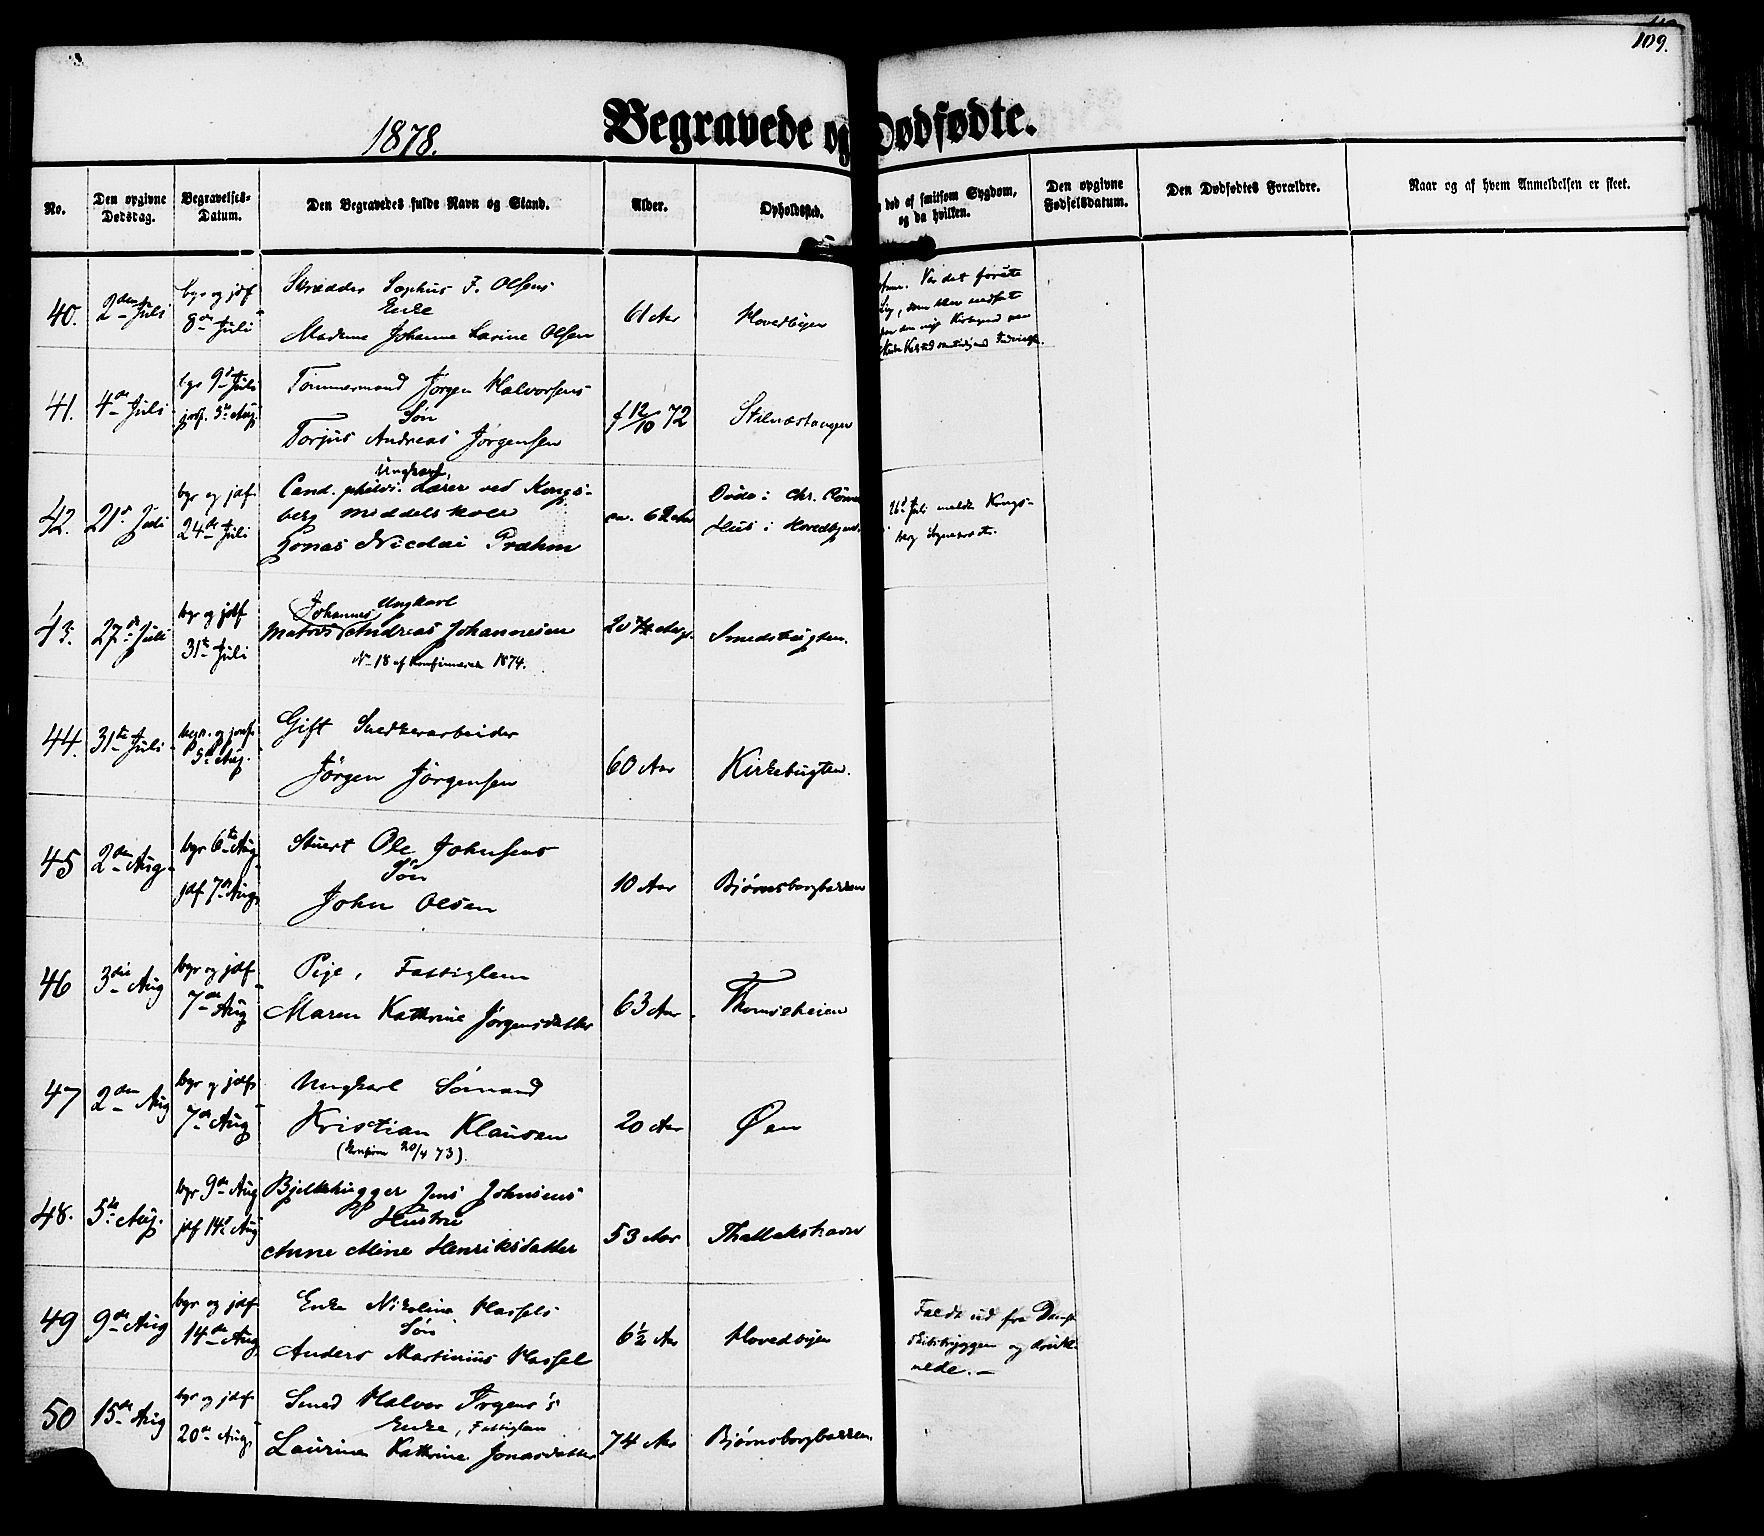 109.
1878.
Begravede og Dødfødte.
No.
Den opgivne Dødsdag.
Begravelses-Datum.
Den Begravedes fulde Navn og Stand.
Alder.
Opholdssted.
død af smitsom Sygdom, og da hvilken.
Den opgivne Fødselsdatum.
Den Dødfødtes Forældre.
Naar og af hvem Anmeldelsen er skeet.
40. 2den Juli
bgr og jdf 8de Juli
Skrædder Sophus F. Olsens
Enke
Madame Johanne Larine Olsen
61 Aar
Hovedbyen
Anm. Var det første
Lig, som blev nedsat
41. 4de Juli
bgr 9de Juli
jordf. 3die Aug.
Tømmermand Jørgen Halvorsens
Søn
Torjus Andreas Jørgensen
f 12/10 72
Stilnæstangen
42. 21de Juli
bgr og jdf
24de Juli
Ungkarl,
Cand. philos. Lærer ved Kongs-
berg Middelskole
Jonas Nicolai Prahm
ca. 62 Aar
Døde i Chr.
Hus i Hovedbyen
26de Juli meldt Kongs-
berg Sogneprest.
43. 27de Juli
bgr og jdf
31te Juli
Johannes Ungkarl
Matros Andreas Johannesen
No 18 af Konfirmerede 1874.
Smedsbugten.
44. 31te Juli
begr. og jordf.
5te Aug.
Gift Snedkerarbeider
Jørgen Jørgensen
60 Aar
Kirkebugten.
45 2den Aug.
bgr 6te Aug
jdf 7de Aug.
Stuert Ole Johnsens
Søn
John Olsen
10 Aar
Bjørnsborgbakken
46 3die Aug
bgr og jdf
7de Aug
Pige, Fattiglem
Maren Kathrine Jørgensdatter
63 Aar
Thomesheien
47 2den Aug
bgr og jdf
7de Aug
Ungkarl Sømand
Kristian Klausen
(Konfirm 20/4 73).
20 Aar
Øen
48. 5te Aug.
bgr 9de Aug
jdf 14de Aug
Bjelkehugger Jens Johnsens
Hustru
Anne Mine Henriksdatter
53 Aar
Thallakshavn
49 9de Aug
bgr og jdf
14de Aug
Enke Nikoline Hassels
Søn
Anders Martinius Hassel
6½ Aar
Hovedbyen
Faldt ud fra Damp-
skibsbryggen og druk-
nede.—
50 15de Aug
bgr og jdf
20de Aug.
Smed Halvor Jørgens's
Enke, Fattiglem
Laurine Kathrine Jonasdatter
74 Aar
Bjørnsborgbakken.